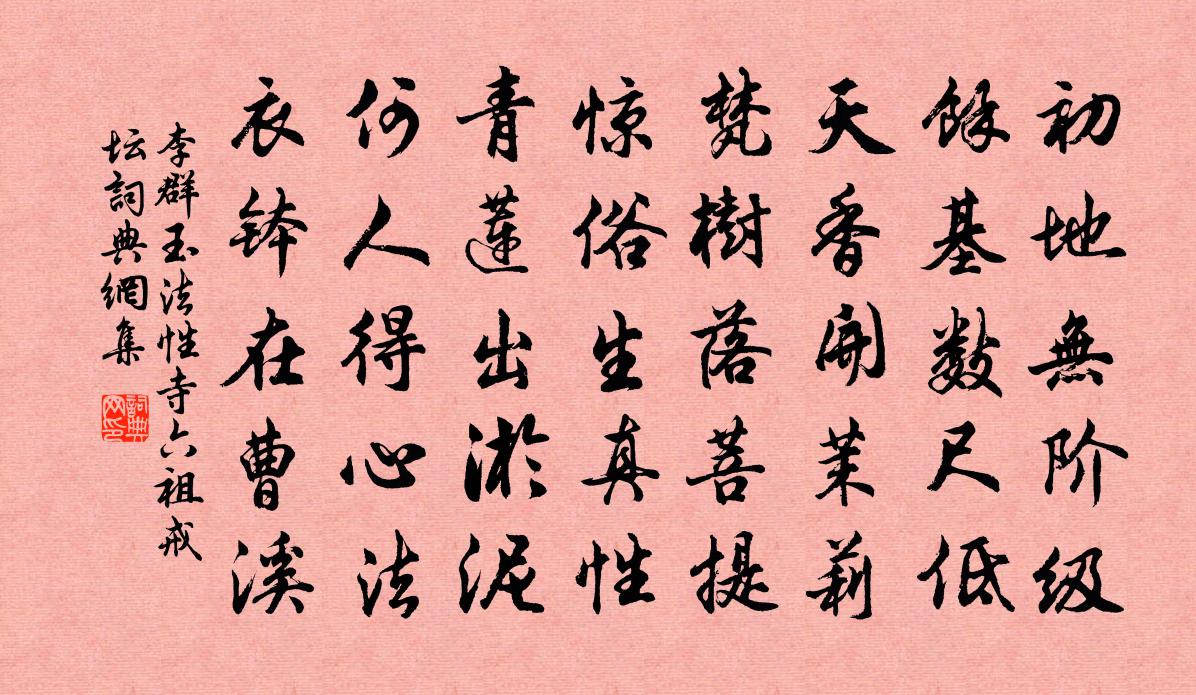 初地無阶级
餘基数尺低
天香開茉莉
梵樹落菩提
惊俗生真性
青蓮出淤泥
何人得心法
衣钵在曹溪
李群玉法性寺六祖戒
坛詞典網集
詞典
网印